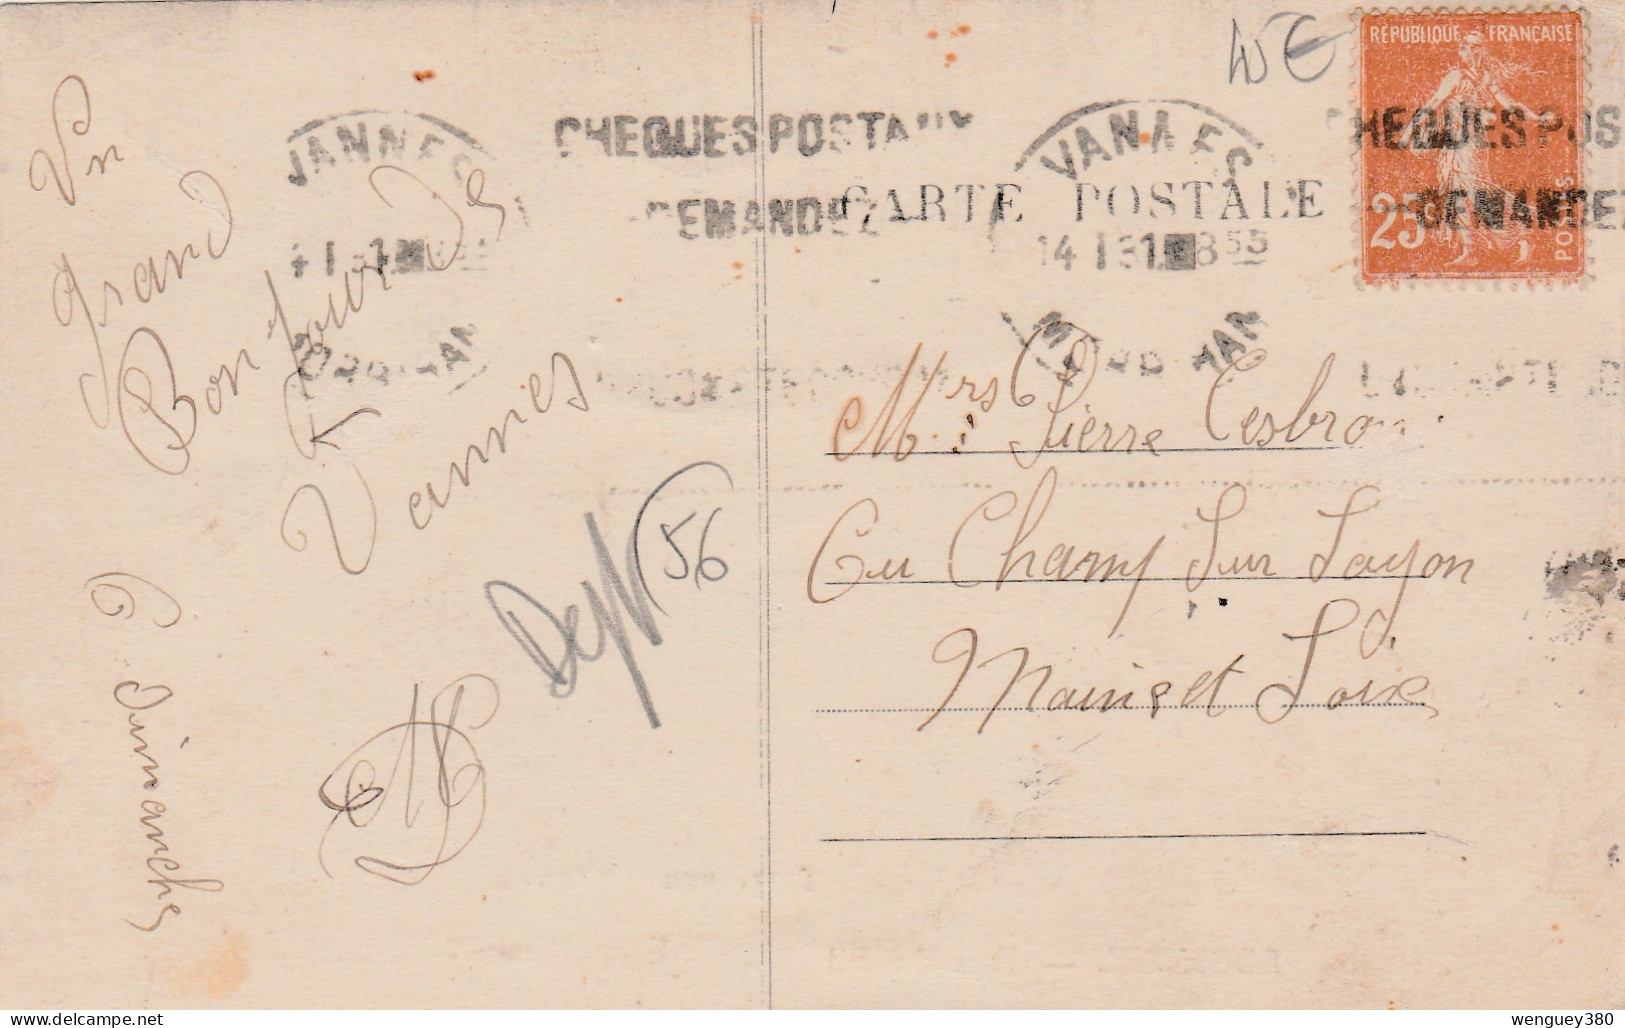 Un
grand
Bonjour de
Vannes
Dimanche
Dept 56
RÉPUBLIQUE FRANÇAISE
25
POSTES
VANNES
CHEQUES POSTAUX
DEMANDEZ
VANNES
14 I 31 8 55
MORBIHAN
CHEQUES POS
DEMANDEZ
CARTE POSTALE
Mrs Pierre Cesbron
Au Champ Sur Layon
Maine et Loire
wenguey380